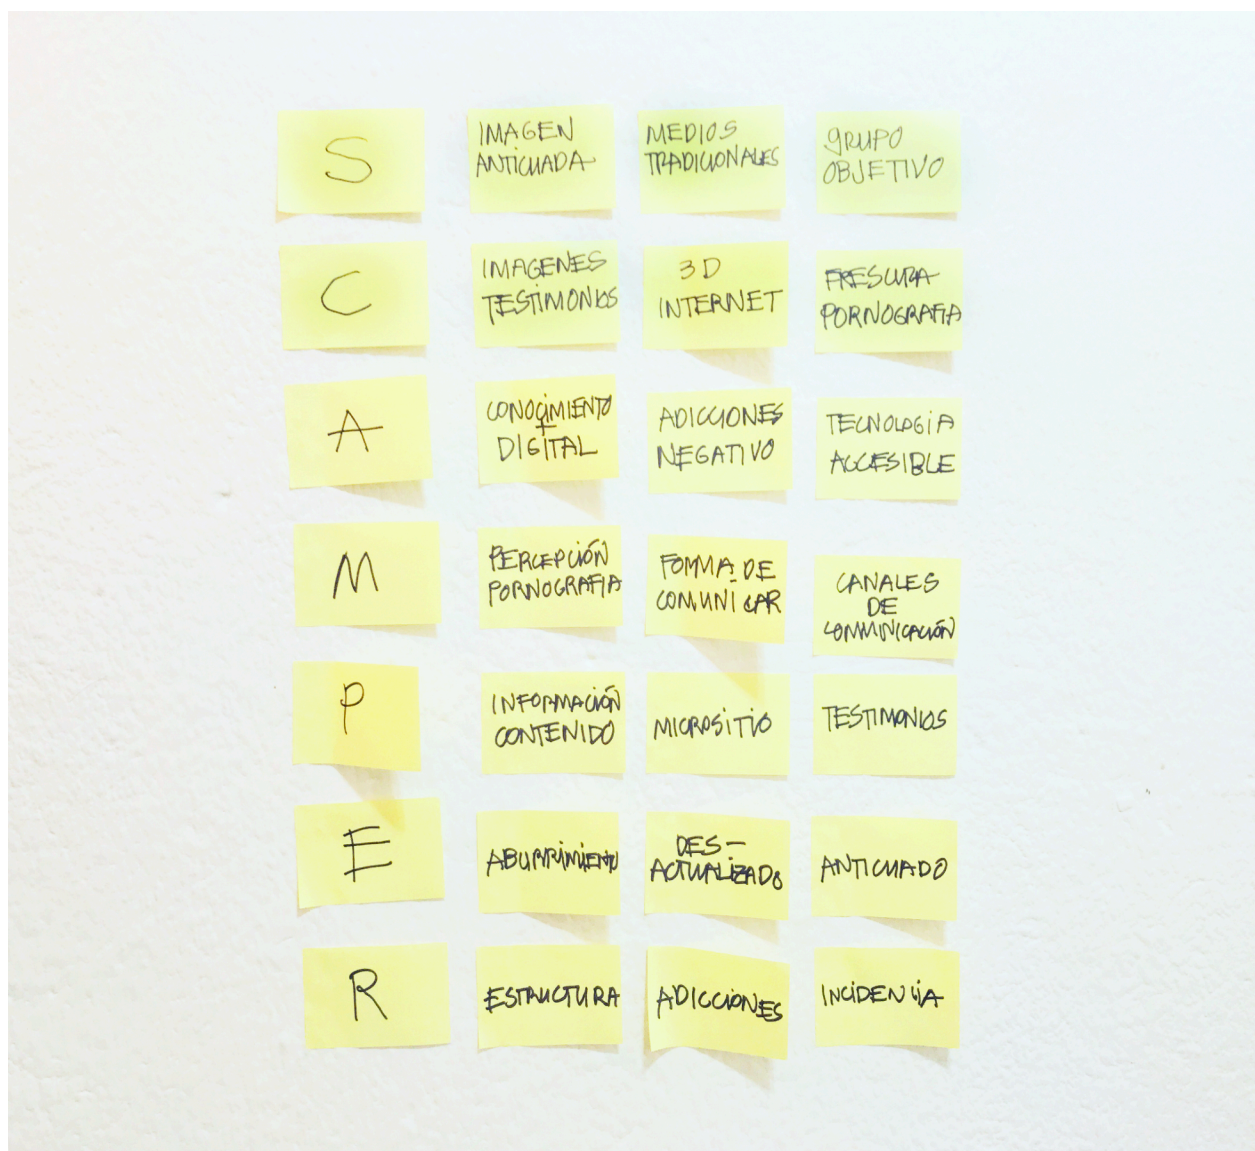 S
IMAGEN
ANTICUADA
MEDIOS
TRADICIONALES
GRUPO
OBJETIVO
C
IMAGENES
TESTIMONIOS
3D
INTERNET
FRESCURA
PORNOGRAFIA
A
CONOCIMIENTO
+
DIGITAL
ADICCIONES
NEGATIVO
TECNOLOGIA
ACCESIBLE
M
PERCEPCIÓN
PORNOGRAFIA
FORMA DE
COMUNICAR
CANALES
DE
COMUNICACIÓN
P
INFORMACIÓN
CONTENIDO
MICROSITIO
TESTIMONIOS
E
ABURRIMIENTO
DES-
ACTUALIZADO
ANTICUADO
R
ESTRUCTURA
ADICCIONES
INCIDENCIA